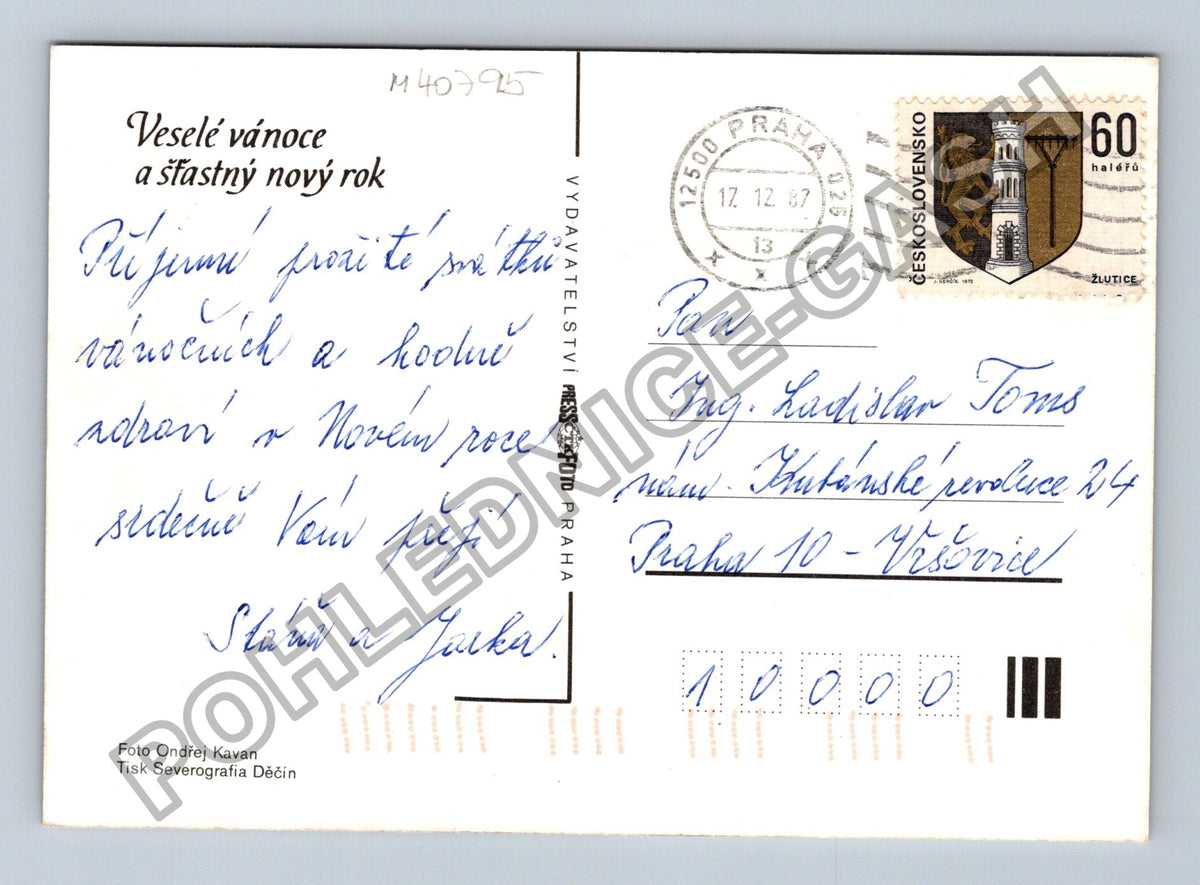 M40795
Veselé vánoce
a šťastný nový rok
Příjemné prožité svátků
vánočních a hodně
zdraví v Novém roce
srdečně Vám přejí
a Jarka.
Foto Ondřej Kavan
Tisk Severografia Děčín
VYDAVATELSTVÍ PRESSFOTO PRAHA
ČTK
12500 PRAHA 025
17.12.87
13
x x x
ČESKOSLOVENSKO
60
haléřů
J. HERČÍK 1973
ŽLUTICE
Pan
Ing. Ladislav Toms
nám. Kubánské revoluce 24
Praha 10 - Vršovice
10000
POHLEDNICE-GASH